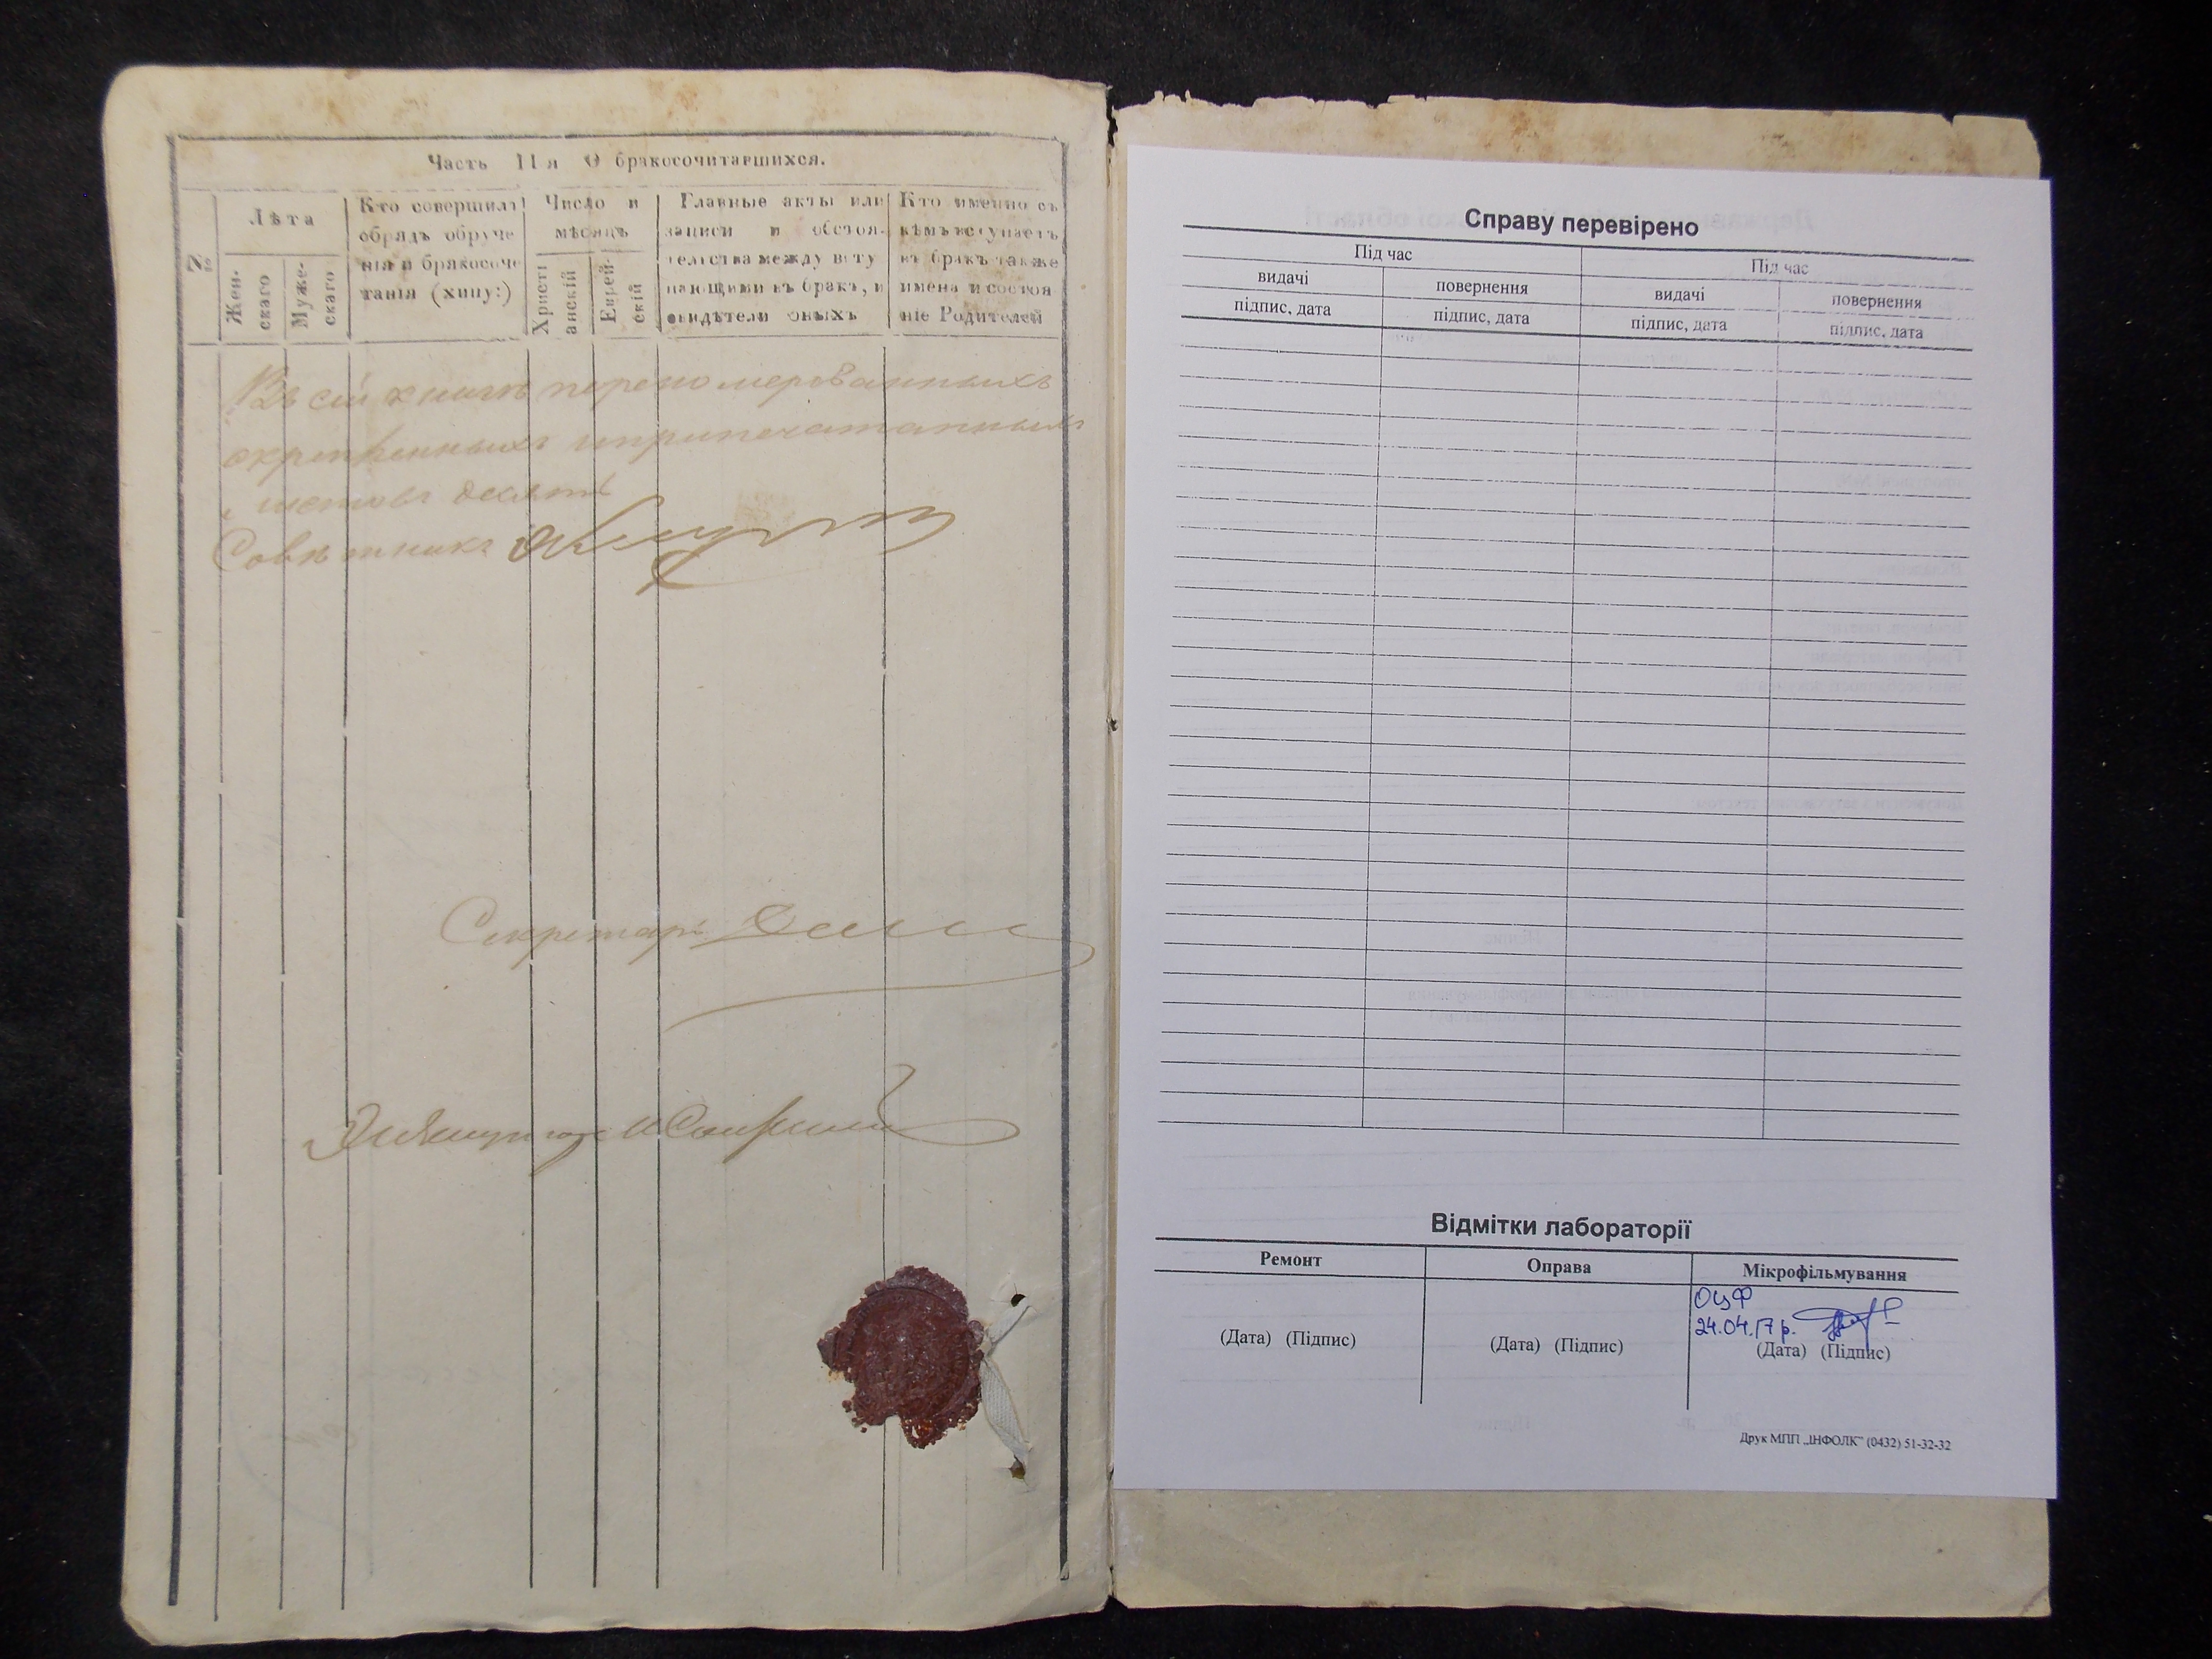 Часть IIя О бракосочитавшихся.
№
Лѣта
Жен-
скаго
Муже-
скаго
Кто совершилъ
обрядъ обруче
нія и бракосоче
танія (хипу:)
Число и
мѣсяцъ
Христі
анскій
Еврей-
скій
Главные акты или
записи и обстоя-
тельства между всту
пающими въ бракъ, и
свидѣтели оныхъ
Кто именно съ
кѣмъ вступаетъ
въ бракъ также
имена и состоя
ніе Родителей
Въ сей книгѣ перономерованныхъ
скрѣпленныхъ иприпечатанныхъ
листовъ десять
Совѣтникъ
Секретарь
Справу перевірено
Під час
Під час
видачі
повернення
видачі
повернення
підпис, дата
підпис, дата
підпис, дата
підпис, дата
Відмітки лабораторії
Ремонт
Оправа
Мікрофільмування
ОЦФ
24.04.17р.
(Дата) (Підпис)
(Дата) (Підпис)
(Дата) (Підпис)
Друк МПП „ІНФОЛК” (0432) 51-32-32